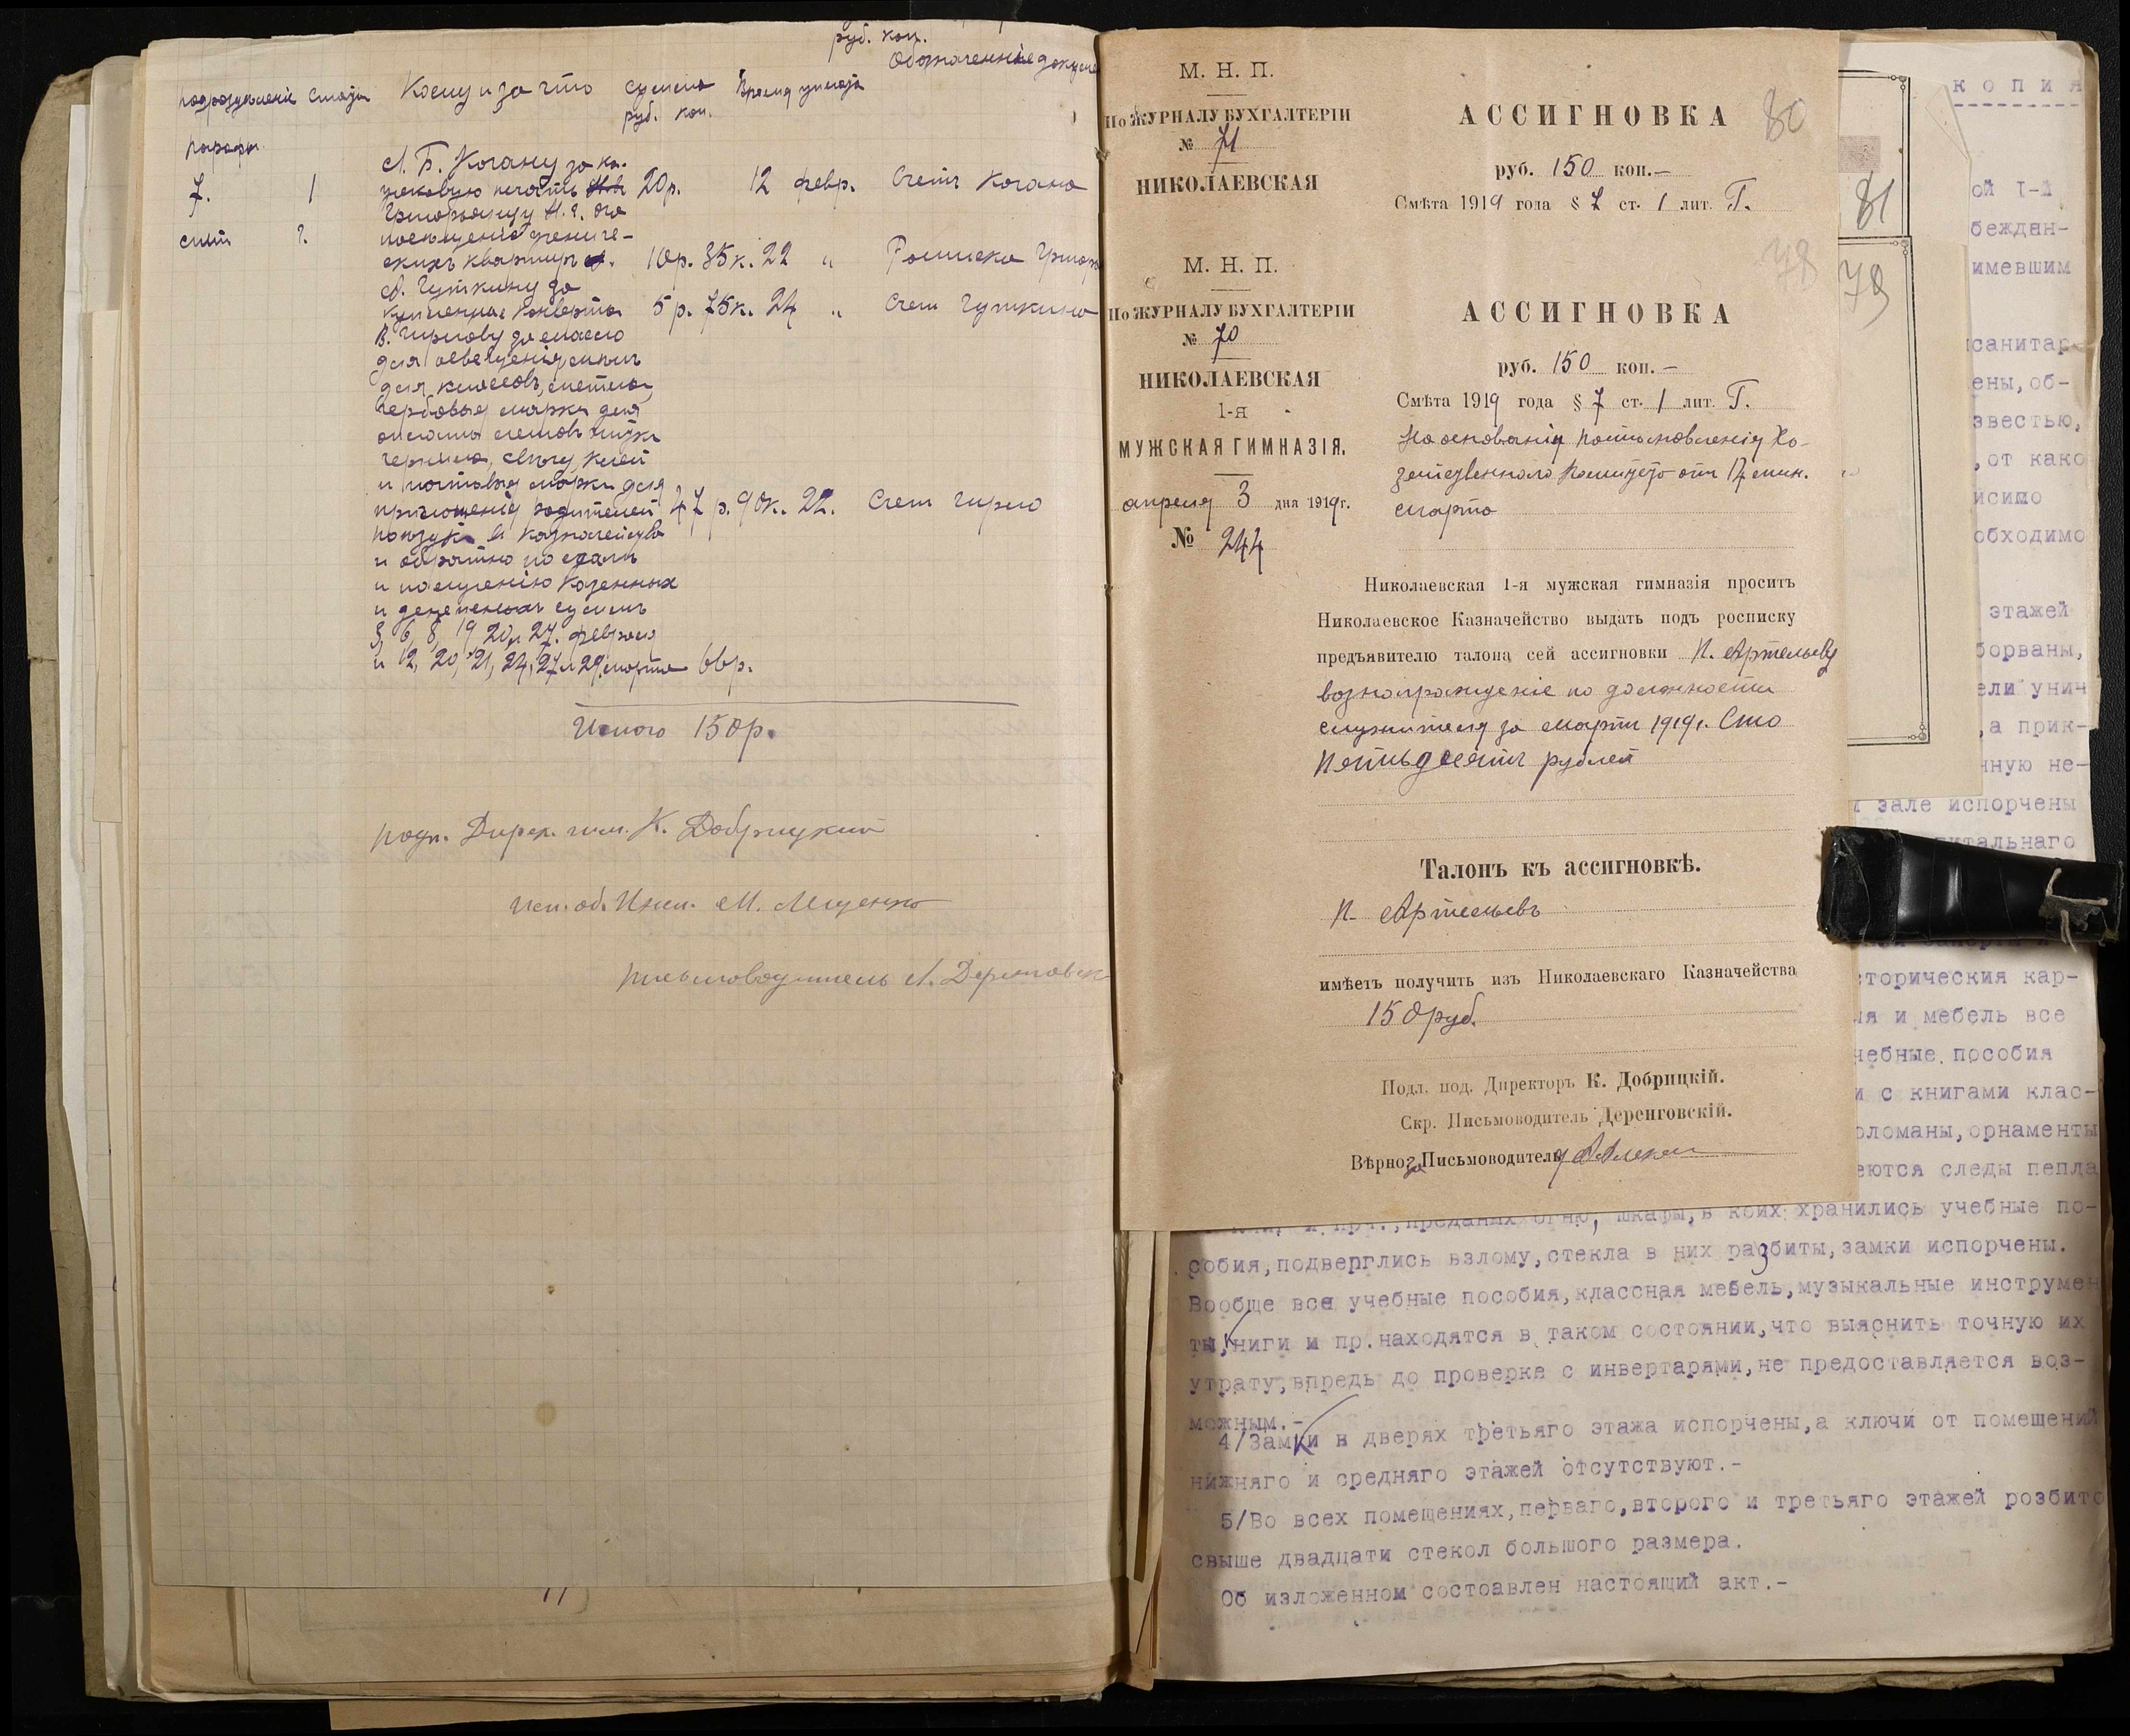 руб. коп.
Обозначение
подразделенiе статья Кому и за что сумма Время уплаты
руб. коп.
параграф
Л. Б. Когану за ка-
7. 1 учуковую печать 20р. 12 февр. Счетъ Когана
Григорацу
лит Г. посѣщенiе учениче-
скихъ квартиръ 10р. 35к. 22 " Росписка
Гуткину за
купленные конверты 5 р. 75к. 24 " Счет Гуткина
В. Чирпову за масло
для освещенiя, мыло
для классовъ, метлы,
гербовыя марки для
оплаты счетовъ
чернила, свѣчу, клей
и почтовыя марки для
приглашенiя родителей 47 р. 90к. 22. Счет
поездки в казначейство
и обратно по сдачѣ
и полученiю казенных
и денежныхъ суммъ
5, 6, 8, 19, 20 и 27. февраля
и 12, 20, 21, 24, 27 и 29 марта 66р.
Итого 150р.
подп. Дирек. гим. К. Добрицкий
исп. об. Инсп. М. Мищенко
письмоводитель Л.
М. Н. П.
По ЖУРНАЛУ БУХГАЛТЕРIИ
№ 71
НИКОЛАЕВСКАЯ
АССИГНОВКА 80
руб. 150 коп.—
Смѣта 1919 года § 7 ст. 1 лит. Г.
78
М. Н. П.
По ЖУРНАЛУ БУХГАЛТЕРIИ
№ 70
НИКОЛАЕВСКАЯ
1-я
МУЖСКАЯ ГИМНАЗIЯ.
апреля 3 дня 1919г.
№ 244
АССИГНОВКА
руб. 150 коп.—
Смѣта 1919 года § 7 ст. 1 лит. Г.
На основанiи постановленiя Хо-
зяйственнаго Комитета отъ 17 мин.
марта
Николаевская 1-я мужская гимназiя проситъ
Николаевское Казначейство выдать подъ росписку
предъявителю талона сей ассигновки П. Артельеву
вознагражденiе по должности
служителя за мартъ 1919г. Сто
пятьдесятъ рублей
Талонъ къ ассигновкѣ.
П. Артельевъ
имѣетъ получить изъ Николаевскаго Казначейства
150 руб.
Подл. под. Директоръ К. Добрицкiй.
Скр. Письмоводитель Деренговскiй.
Вѣрно: за Письмоводителя
81
79
к о п и я
ой I-й
беждан-
имевшим
санитар-
ены, об-
звестью,
, от како
исимо
обходимо
этажей
борваны,
ели унич
, а прик-
нную не-
и зале испорчены
тальнаго
сторическия кар-
ия и мебель все
чебные пособия
и с книгами клас-
оломаны, орнаменты
еются следы пепла
и прч., преданных огню, шкафы, в коих хранились учебные по-
собия, подверглись взлому, стекла в них разбиты, замки испорчены.
Вообще все учебные пособия, классная мебель, музыкальные инструмен
ты, книги и пр. находятся в таком состоянии, что выяснить точную их
утрату, впредь до проверке с инвертарями, не предоставляется воз-
можным.-
4/Замки в дверях третьяго этажа испорчены, а ключи от помещений
нижняго и средняго этажей отсутствуют.-
5/Во всех помещениях, перваго, второго и третьяго этажей розбито
свыше двадцати стекол большого размера.
Об изложенном состоавлен настоящий акт.-